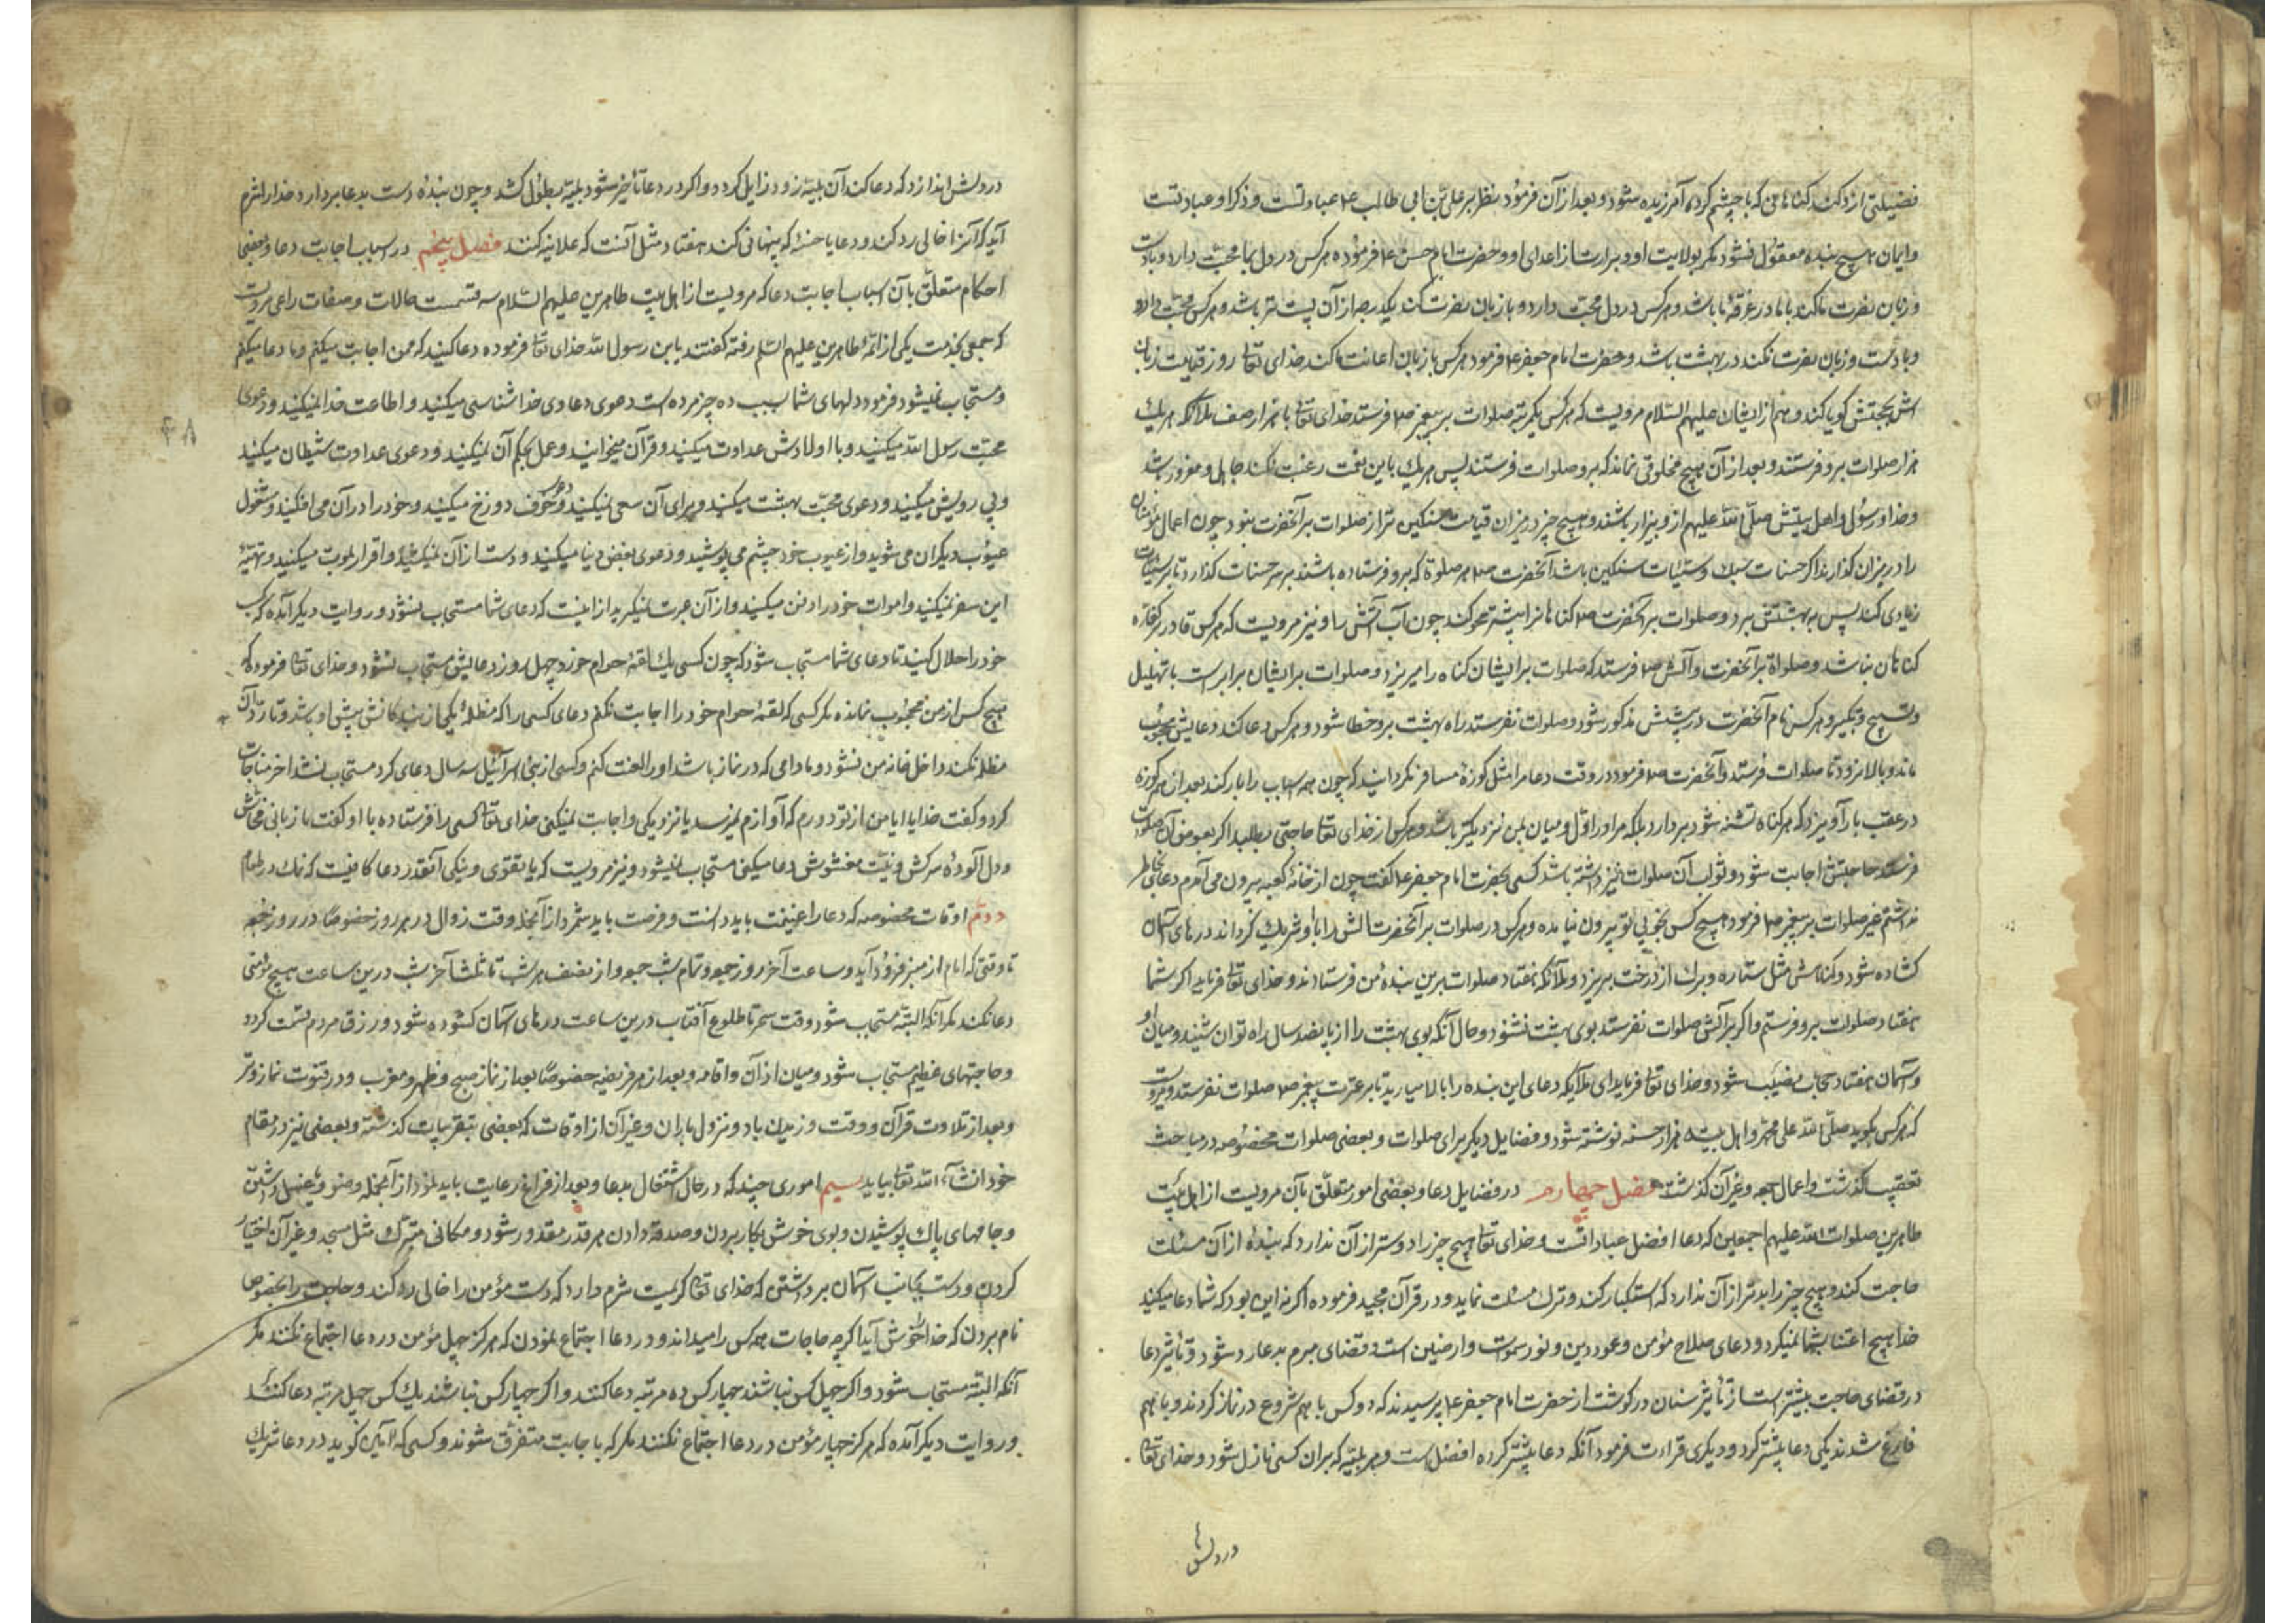 فضیلتی از ذکند کناهانی که با چشم کرده آمرزیده شود و بعد از آن فرمود نظر بر علی بن ابی طالب ع عبادتست و ذکر او عبادتست
و ایمان هیچ بنده معقول نشود مکر بولایت او و برارت از اعدای او و حضرت امام حسن ع فرموده هر کس در دل بما محبت دارد و بادست
و زبان نصرت ما کند با ما در غرفهٔ ما باشد و هر کس در دل محبت دارد و با زبان نصرت کند یکدرجه از آن پست تر باشد و هر کس محبت دارد
و با دست و زبان نصرت نکند در بهشت باشد و حضرت امام جعفر ع فرمود هر کس با زبان اعانت ما کند خدای تعالی روز قیامت زبان
اش بحجتش کویا کند و هم از ایشان علیهم السلام مرویست که هر کس یکمرتبه صلوات بر پیغمبر ص فرستد خدای تعالی با هزار صف ملائکه هر یک
هزار صلوات برو فرستند و بعد از آن هیچ مخلوقی نماند که برو صلوات فرستند پس هر یک باین نعمت رغبت نکند جاهل و مغرور باشد
و خدا و رسول و اهل بیتش صلی الله علیهم ازو بیزار باشند و هیچ چیز در میزان قیامت سنکین تر از صلوات بر آنحضرت نبود چون اعمال مؤمنان
را در میزان کذارند اکر حسنات سبک و سیئات سنکین باشد آنحضرت ص هر صلوة که برو فرستاده باشند بر سر حسنات کذارد تا بر سیئات
زیادی کند پس به بهشتش برد و صلوات بر آنحضرت ص کناهانرا بیشتر محو کند چون آب آتش را و نیز مرویست که هر کس قادر بر کفاره
کناهان نباشد و صلوة بر آنحضرت و آلش ص فرستد که صلوات بر ایشان کناه را میریزد و صلوات بر ایشان برابرست با تهلیل
و تسبیح و تکبیر و هر کس نام آنحضرت در پیشش مذکور شود و صلوات نفرستد راه بهشت برو خطا شود و هر کس دعا کند دعایش محجوب
ماند و بالا نرود تا صلوات فرستد و آنحضرت ص فرمود در وقت دعا مرا مثل کوزهٔ مسافر نکردانید که چون همه اسباب را بار کند بعد از همه کوزه
در عقب بار آویزد که هر کاه تشنه شود بردارد بلکه مرا در اول و میان بمن نیز دیکتر باشد و هر کس از خدای تعالی حاجتی بطلبد اکر بعوض آن صلوات
فرستد حاجتش اجابت شود و ثواب آن صلوات نیز داشته باشد کسی بحضرت امام جعفر ع کفت چون از خانهٔ کعبه بیرون می آمدم دعائی بخاطر
نداشتم غیر صلوات بر پیغمبر ص فرمود هیچ کس بخوبی تو بیرون نیامده و هر کس در صلوات بر آنحضرت آلش را با او شریک کرداند درهای آسمان
کشاده شود و کناهش مثل ستاره و برک از درخت بریزد و ملائکه هفتاد صلوات برین بندهٔ من فرستادند و خدای تعالی فرماید اکر شما
هفتاد صلوات برو فرستم و اکر بر آلش صلوات نفرستد بوی بهشت نشنود و حال آنکه بوی بهشت را از پانصد سال راه توان شنید و میان او
و آسمان هفتاد حجاب نصیب شود و خدای تعالی فرماید ای ملائکه دعای این بنده را بالا میارید تا بر عترت پیغمبر ص صلوات نفرستد و مرویست
که هر کس بکوید صلی الله علی محمد و اهل بیته هزار حسنه نوشته شود و فضایل دیکر برای صلوات و بعضی صلوات مخصوصه در مباحث
تعقیب کذشت و اعمال جمعه و غیر آن کذشت فصل چهارم در فضایل دعا و بعضی امور متعلق بآن مرویست از اهل بیت
طاهرین صلوات الله علیهم اجمعین که دعا افضل عبادات است و خدای تعالی هیچ چیز را دوستر از آن ندارد که بندهٔ از آن مسئلت
حاجت کند و هیچ چیز را بدتر از آن ندارد که استکبار کند و ترک مسئلت نماید و در قرآن مجید فرموده اکر نه این بود که شما دعا میکنید
خدا هیچ اعتنا بشما نمیکرد و دعای صلاح مؤمن و عمود دین و نور سموات و ارضین است و قضای مبرم بدعا رد شود و تأثیر دعا
در قضای حاجت بیشتر است از تأثیر سنان در کوشت از حضرت امام جعفر ع پرسیدند که دو کس با هم شروع در نماز کردند و با هم
فارغ شدند یکی دعا بیشتر کرد و دیکری قراءت فرمود آنکه دعا بیشتر کرده افضل است و هر بلیه که بران کسی نازل شود و خدای تعالی
در دلش
در دلش اندازد که دعا کند آن بلیه زود زایل کردد و اکر در دعا تأخیر شود بلیه بطول کشد و چون بنده دست بدعا بردارد خدا را شرم
آید که آنرا خالی رد کند و دعا یا حسنه که پنهانی کند هفتاد مثل آنست که علانیه کنند فصل پنجم در اسباب اجابت دعا و بعضی
احکام متعلق بآن اسباب اجابت دعا که مرویست از اهل بیت طاهرین علیهم السلام سه قسمست حالات و صفات راعی مرویست
که جمعی بخدمت یکی از ائمهٔ طاهرین علیهم السلم رفته کفتند یابن رسول الله خدای تعالی فرموده دعا کنید که من اجابت میکنم و ما دعا میکنم
و مستجاب نمیشود فرمود دلهای شما بسبب ده چیز مرده است دعوی دعاوی خدا شناسی میکنید و اطاعت خدا نمیکنید و دعوی
محبت رسول الله میکنید و با اولادش عداوت میکنید و قرآن میخوانید و عمل بحکم آن نمیکنید و دعوی عداوت شیطان میکنید
و پی رویش میکنید و دعوی محبت بهشت میکنید و برای آن سعی نمیکنید و دعوی خوف دوزخ میکنید و خود را در آن می افکنید و مشغول
عیوب دیکران می شوید و از عیوب خود چشم می پوشید و دعوی بغض دنیا میکنید و دست از آن نمیکشید و اقرار بموت میکنید و تهیهٔ
این سفر نمیکنید و اموات خود را دفن میکنید و از آن عبرت نمیکیرید ازاینست که دعای شما مستجاب نشود و روایت دیکر آمده که کسب
خود را حلال کنید تا دعای شما مستجاب شود که چون کسی یک لقمهٔ حرام خورد چهل روز دعایش مستجاب نشود و خدای تعالی فرموده که
هیچ کس از من محجوب نمانده مکر کسی که لقمهٔ حرام خورد را اجابت نکنم دعای کسی را که مظلمهٔ یکی از بندکانش پیش او باشد و تا رد آن
مظلمه نکند داخل خانه من نشود و مادامی که در نماز باشد او را لعنت کنم و کسی از بنی اسرائیل سه سال دعای کرد مستجاب نشد آخر مناجات
کرد و کفت خدایا ایا من از تو دورم که آوازم نمیرسد یا نزدیکی و اجابت نمیکنی خدای تعالی کسی را فرستاده با او کفت با زبانی فحاش
و دل آلودهٔ سرکش و نیت مغشوش دعا میکنی مستجاب نمیشود و نیز مرویست که با تقوی و نیکی آنقدر دعا کافیست که نمک در طعام
دوم اوقات مخصوصه که دعا را غنیمت باید دانست و فرصت باید شمرد از آنجمله وقت زوال در هر روز خصوصا در روز جمعه
تا وقتی که امام از منبر فرود آید و ساعت آخر روز جمعه و تمام شب جمعه و از نصف هر شب تا ثلث آخر شب درین ساعت هیچ مؤمنی
دعا نکند مکر آنکه البته مستجاب شود و وقت سحر تا طلوع آفتاب درین ساعت درهای آسمان کشوده شود و رزق مردم قسمت کردد
و حاجتهای عظیم مستجاب شود و میان اذان و اقامه و بعد از هر فریضه خصوصا بعد از نماز صبح و ظهر و مغرب و در قنوت نماز وتر
و بعد از تلاوت قرآن و وقت وزیدن باد و نزول باران و غیر آن از اوقات که بعضی بتقریبات کذشته و بعضی نیز در مقام
خود انشاء الله تعالی بیاید سیم اموری چند که در حال اشتغال بدعا و بعد از فراغ رعایت باید نمود از آنجمله وضو و غسل داشتن
و جامهای پاک پوشیدن و بوی خوش بکار بردن و صدقه دادن هر قدر مقدور شود و مکانی متبرک مثل مسجد و غیر آن اختیار
کردن و دست بجانب آسمان برداشتن که خدای تعالی کریمست شرم دارد که دست مؤمن را خالی رد کند و حاجت را بخصوص
نام بردن که خدا را خوش آید اکرچه حاجات همه کس را میداند و در دعا اجتماع نمودن که هرکز چهل مؤمن در دعا اجتماع نکنند مکر
آنکه البته مستجاب شود و اکر چهل کس نباشند چهار کس ده مرتبه دعا کنند و اکر چهار کس نباشند یک کس چهل مرتبه دعا کند
و روایت دیکر آمده که هرکز چهار مؤمن در دعا اجتماع نکنند مکر که با جابت متفرق شوند و کسی که آمین کوید در دعا شریک